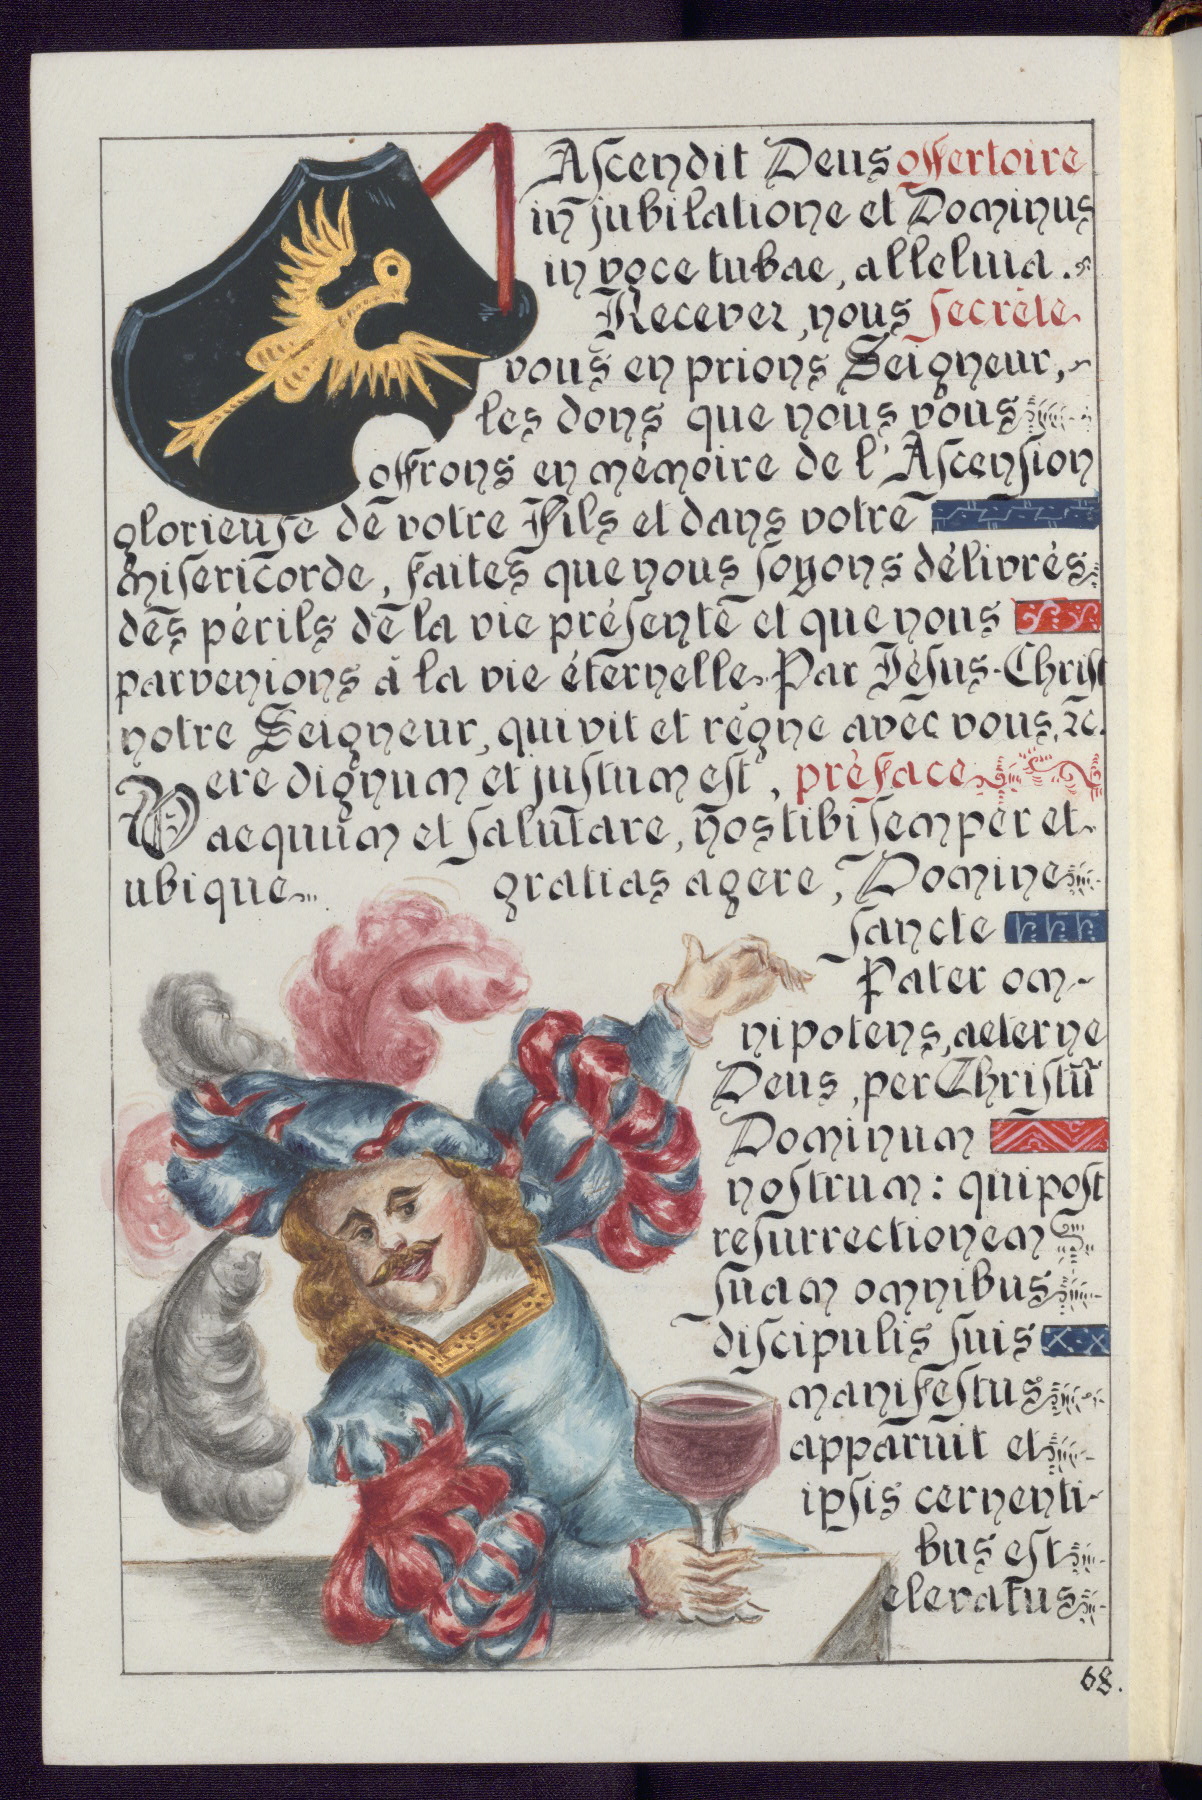 Aſcendit Deus offertoire
in jubilatione et Dominus
in voce tubae, alleluia.
Recevez, nous ſecrète
vous en prions Seigneur,
les dons que nous vous
offrons en mémoire de l'Aſcenſion
glorieuſe de votre Fils et dans votre
miſericorde, faites que nous ſoyons délivrés
des périls de la vie préſente et que nous
parvenions à la vie éternelle. Par Jéſus-Chriſt
notre Seigneur, qui vit et règne avec vous, &c.
Vere dignum et juſtum eſt, préface
aequum et ſalutare, nos tibi ſemper et
ubique gratias agere, Domine
ſancte
Pater om-
nipotens, aeterne
Deus, per Chriſtū
Dominum
noſtrum: qui poſt
reſurrectionem
ſuam omnibus
diſcipulis ſuis
manifeſtus
apparuit et
ipſis cernenti-
bus eſt
elevatus
68.